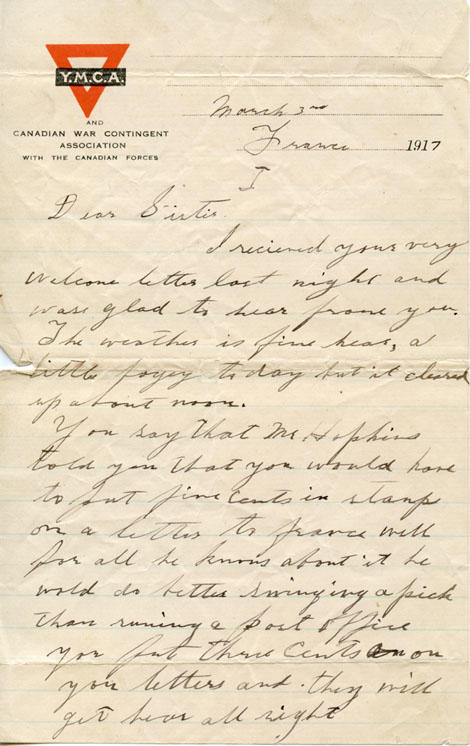 Y.M.C.A.
AND
CANADIAN WAR CONTINGENT
ASSOCIATION
WITH THE CANADIAN FORCES
March 3rd
France 1917
I
Dear Sister
I recieved your very
welcome letter last night and
was glad to hear frome you.
The weather is fine hear, a
little fogey today but it cleared
up about noon.
You say that Mr. Hopkins
told you that you would have
to put five cents in stamp
on a letter to france well
for all he knows about it he
wold do better swinging a pick
than runing a post office
you put three cents on
your letters and they will
get hear all right